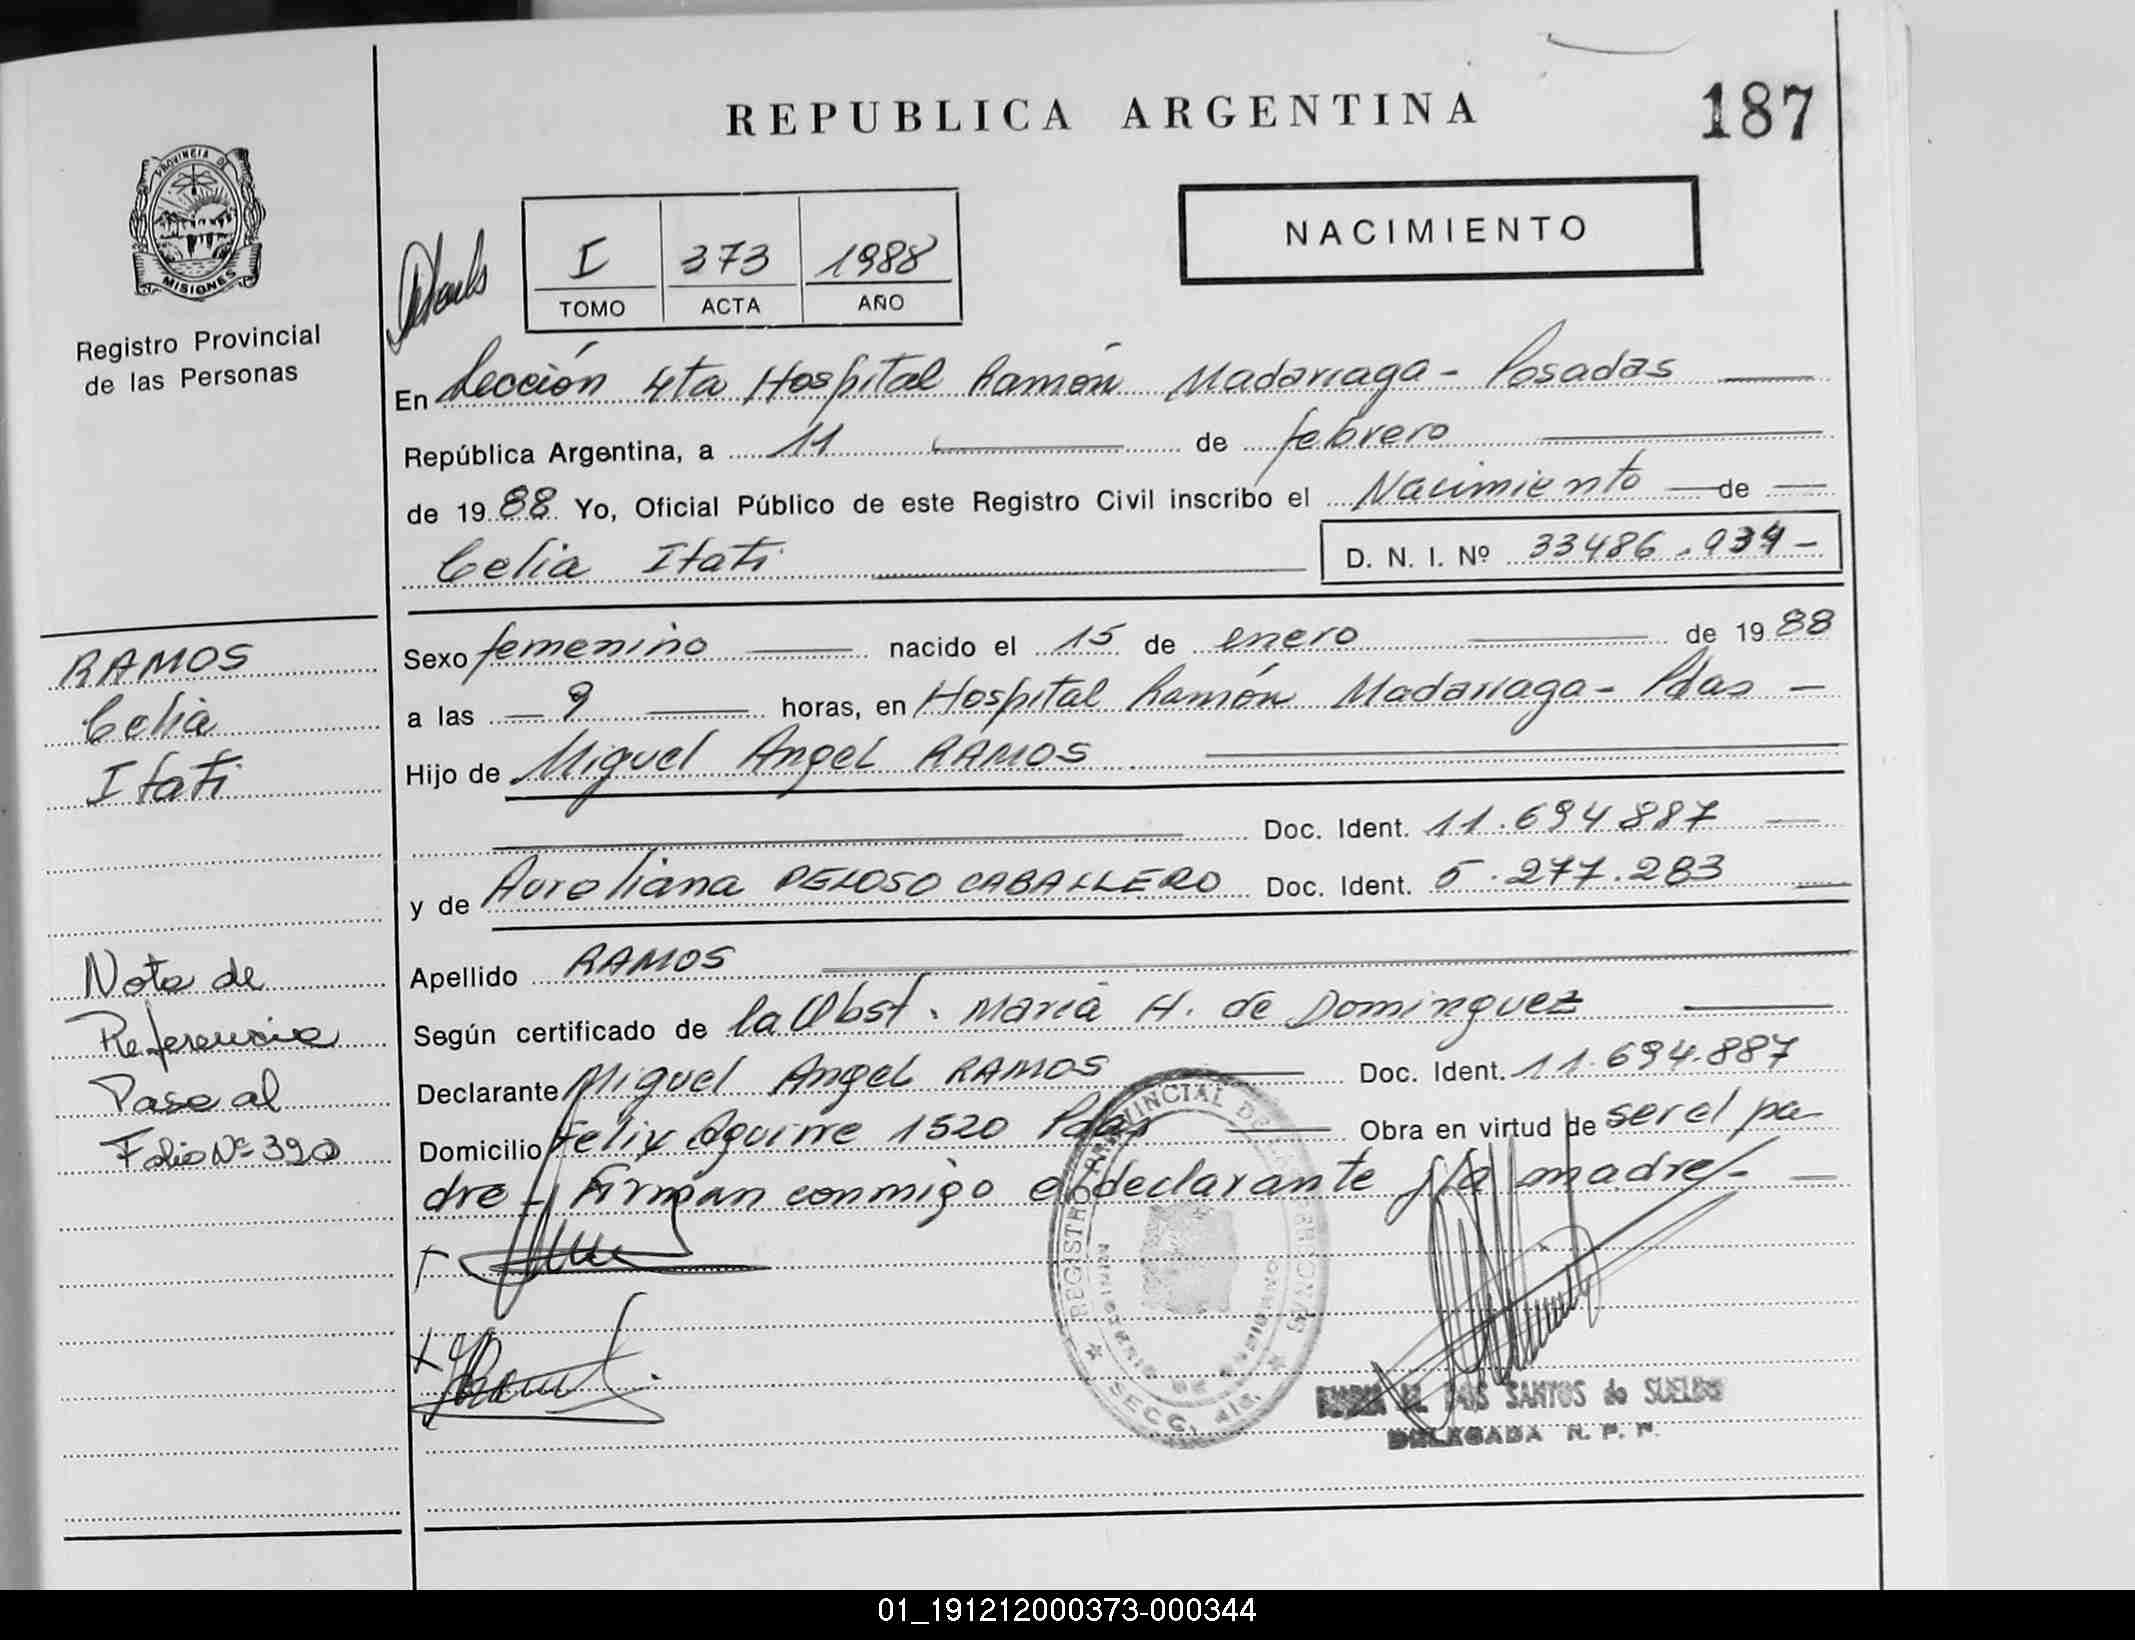 REPUBLICA ARGENTINA
187
PROVINCIA DE
MISIONES
Registro Provincial
de las Personas
NACIMIENTO
I 373 1988
TOMO ACTA AÑO
En Sección 4ta Hospital Ramón Madariaga - Posadas
República Argentina, a 11 de febrero
de 1988 Yo, Oficial Público de este Registro Civil inscribo el Nacimiento de
Celia Itati D. N. I. Nº 33486.934-
RAMOS
Celia
Itati
Sexo femenino nacido el 15 de enero de 1988
a las 9 horas, en Hospital Ramón Madariaga - Pdas -
Hijo de Miguel Angel RAMOS
Doc. Ident. 11.694.887
y de Aureliana PELOSO CABALLERO Doc. Ident. 5.277.283
Nota de
Referencia
Pase al
Folio Nº 390
Apellido RAMOS
Según certificado de la Obst. Maria H. de Dominguez
Declarante Miguel Angel RAMOS Doc. Ident. 11.694.887
Domicilio Felix Aguirre 1520 Pdas Obra en virtud de ser el pa-
dre - Firman conmigo el declarante y la madre -
REGISTRO PROVINCIAL DE LAS PERSONAS
MINISTERIO DE GOBIERNO
SECC. 4ta.
DOS SANTOS de SUELDO
DELEGADA R. P. P.
01_191212000373-000344